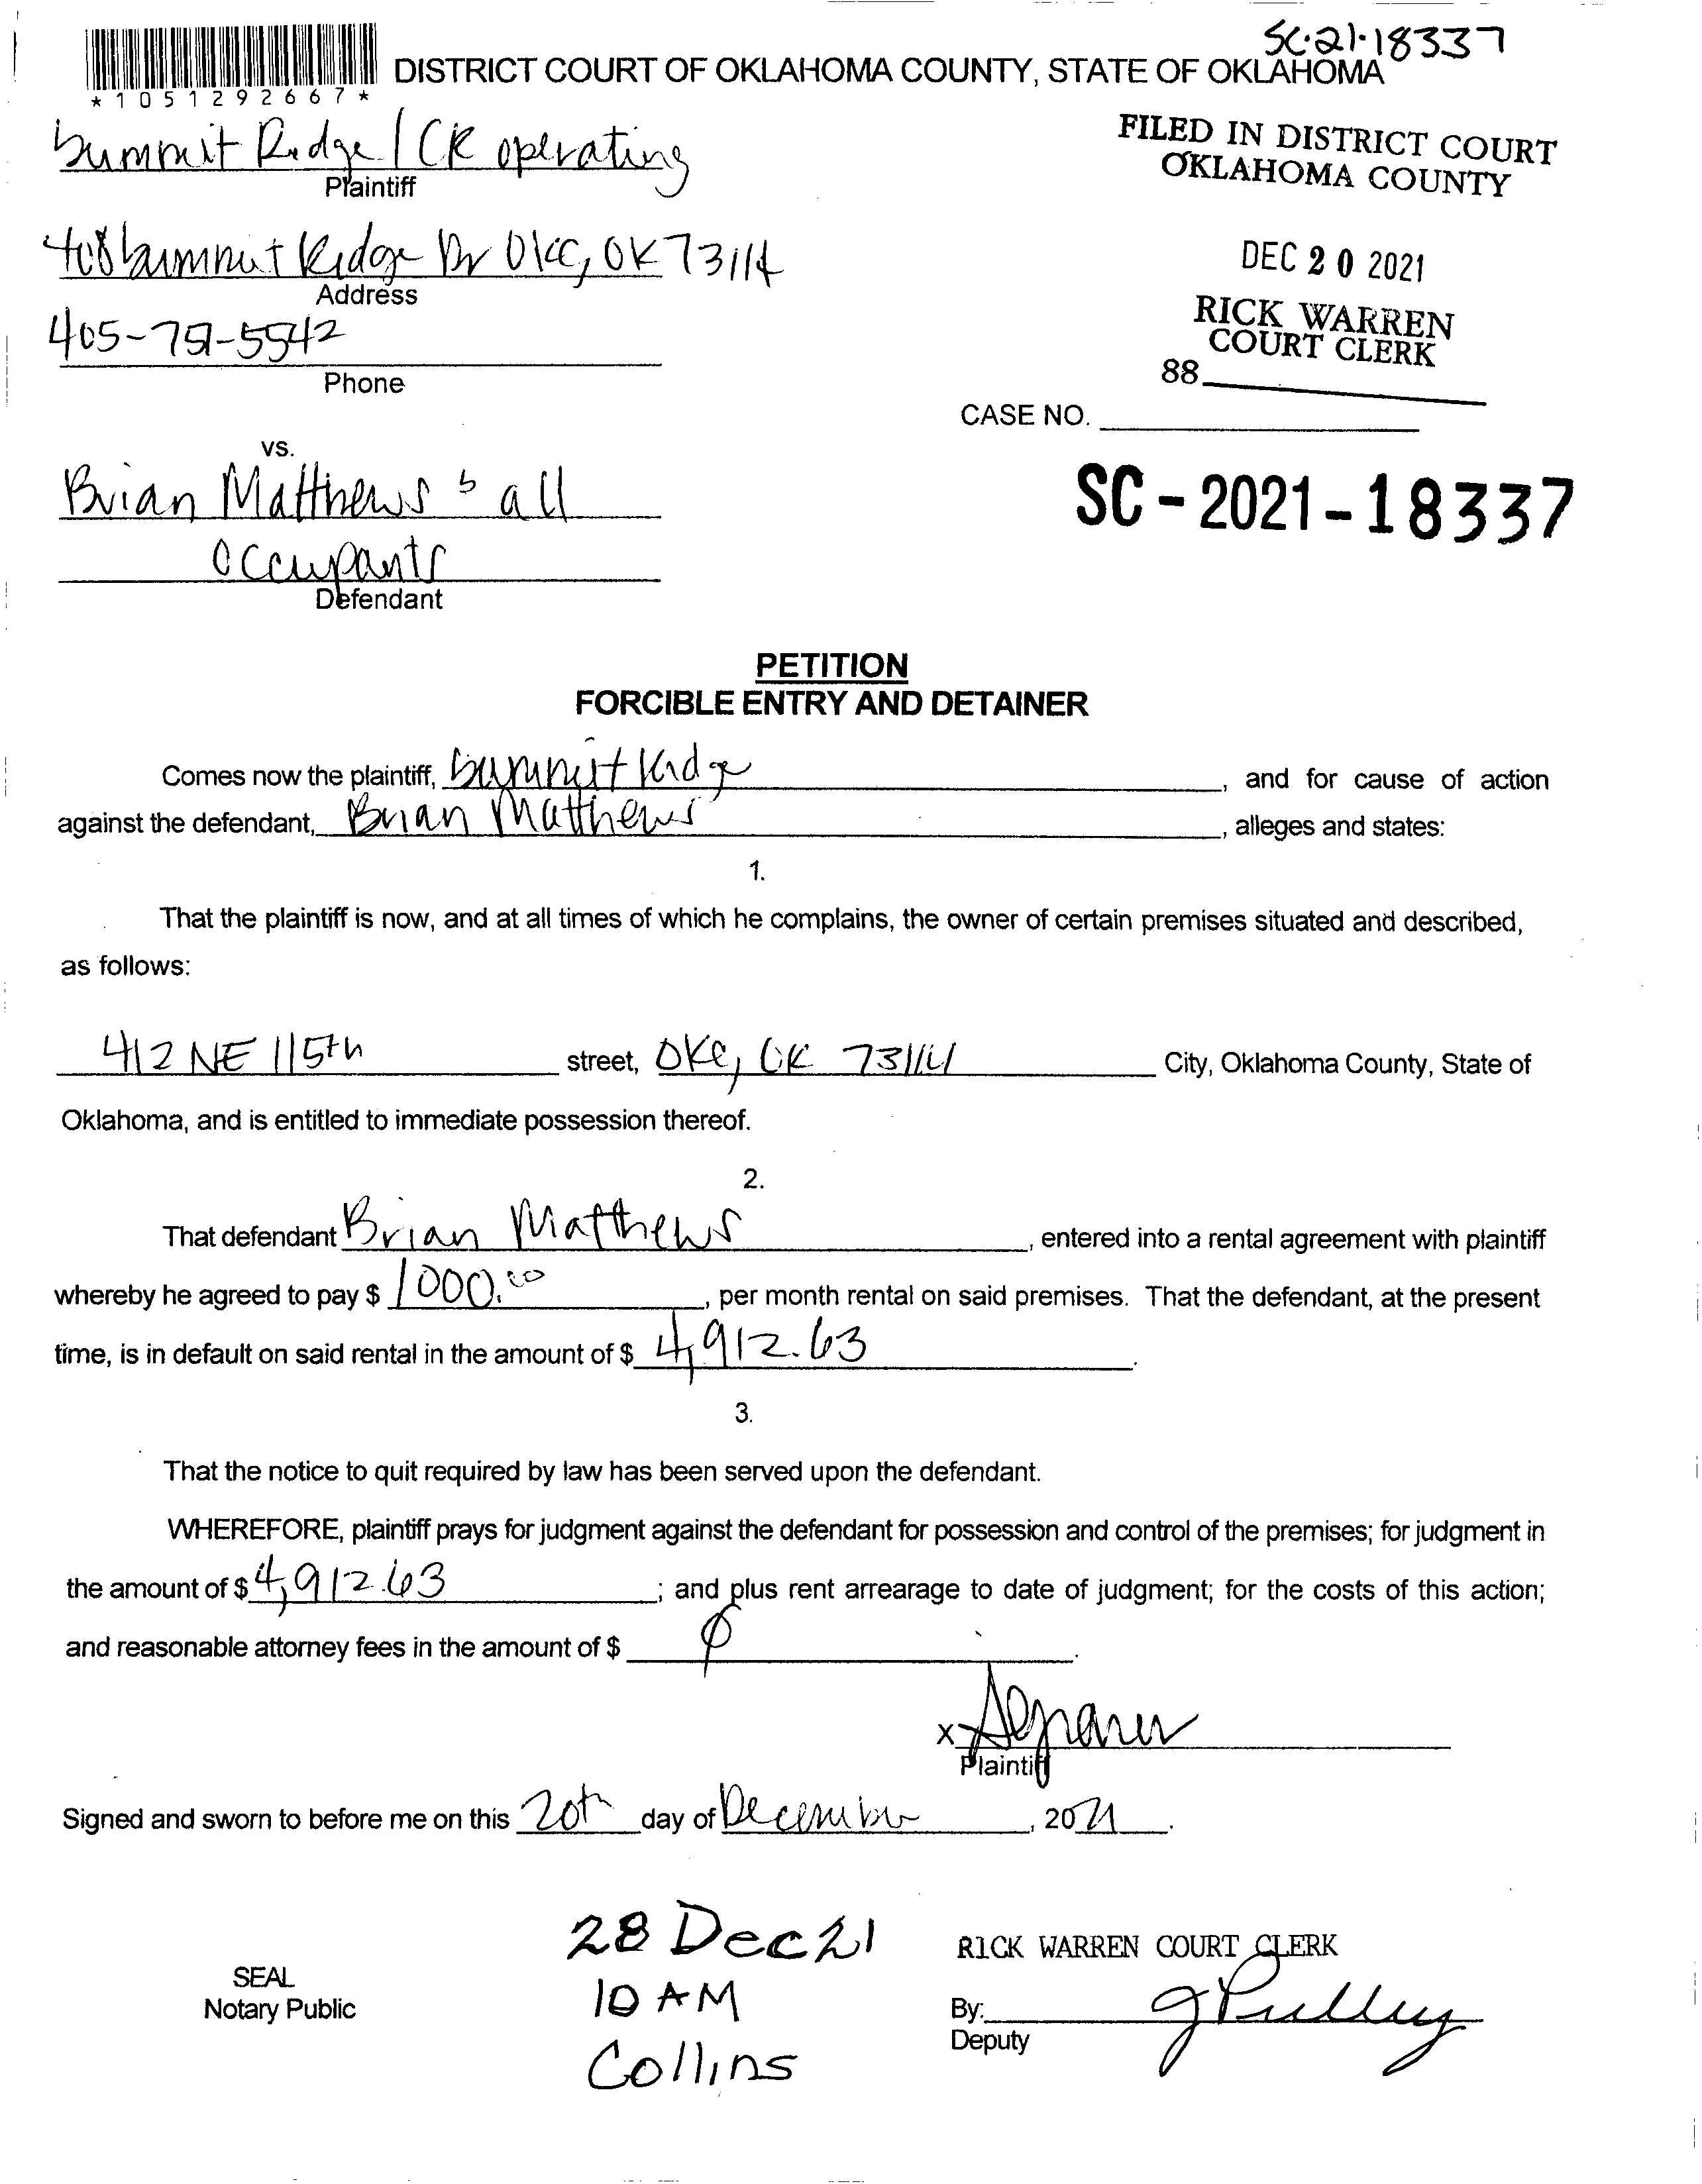 SC-21-18337
*1051292667*
DISTRICT COURT OF OKLAHOMA COUNTY, STATE OF OKLAHOMA
Summit Ridge / CR operating
Plaintiff
FILED IN DISTRICT COURT
OKLAHOMA COUNTY
408 Summit Ridge Dr OKC, OK 73114
Address
DEC 20 2021
405-751-5542
Phone
RICK WARREN
COURT CLERK
88
CASE NO.
vs.
Brian Matthews & all
occupants
Defendant
SC-2021-18337
PETITION
FORCIBLE ENTRY AND DETAINER
Comes now the plaintiff, Summit Ridge, and for cause of action
against the defendant, Brian Matthews, alleges and states:
1.
That the plaintiff is now, and at all times of which he complains, the owner of certain premises situated and described,
as follows:
412 NE 115th street, OKC, OK 73114 City, Oklahoma County, State of
Oklahoma, and is entitled to immediate possession thereof.
2.
That defendant Brian Matthews, entered into a rental agreement with plaintiff
whereby he agreed to pay $ 1000.00, per month rental on said premises. That the defendant, at the present
time, is in default on said rental in the amount of $ 4,912.63.
3.
That the notice to quit required by law has been served upon the defendant.
WHEREFORE, plaintiff prays for judgment against the defendant for possession and control of the premises; for judgment in
the amount of $ 4,912.63; and plus rent arrearage to date of judgment; for the costs of this action;
and reasonable attorney fees in the amount of $ Ø.
X
Plaintiff
Signed and sworn to before me on this 20th day of December, 2021.
28 Dec 21
10 AM
Collins
SEAL
Notary Public
RICK WARREN COURT CLERK
By:
Deputy